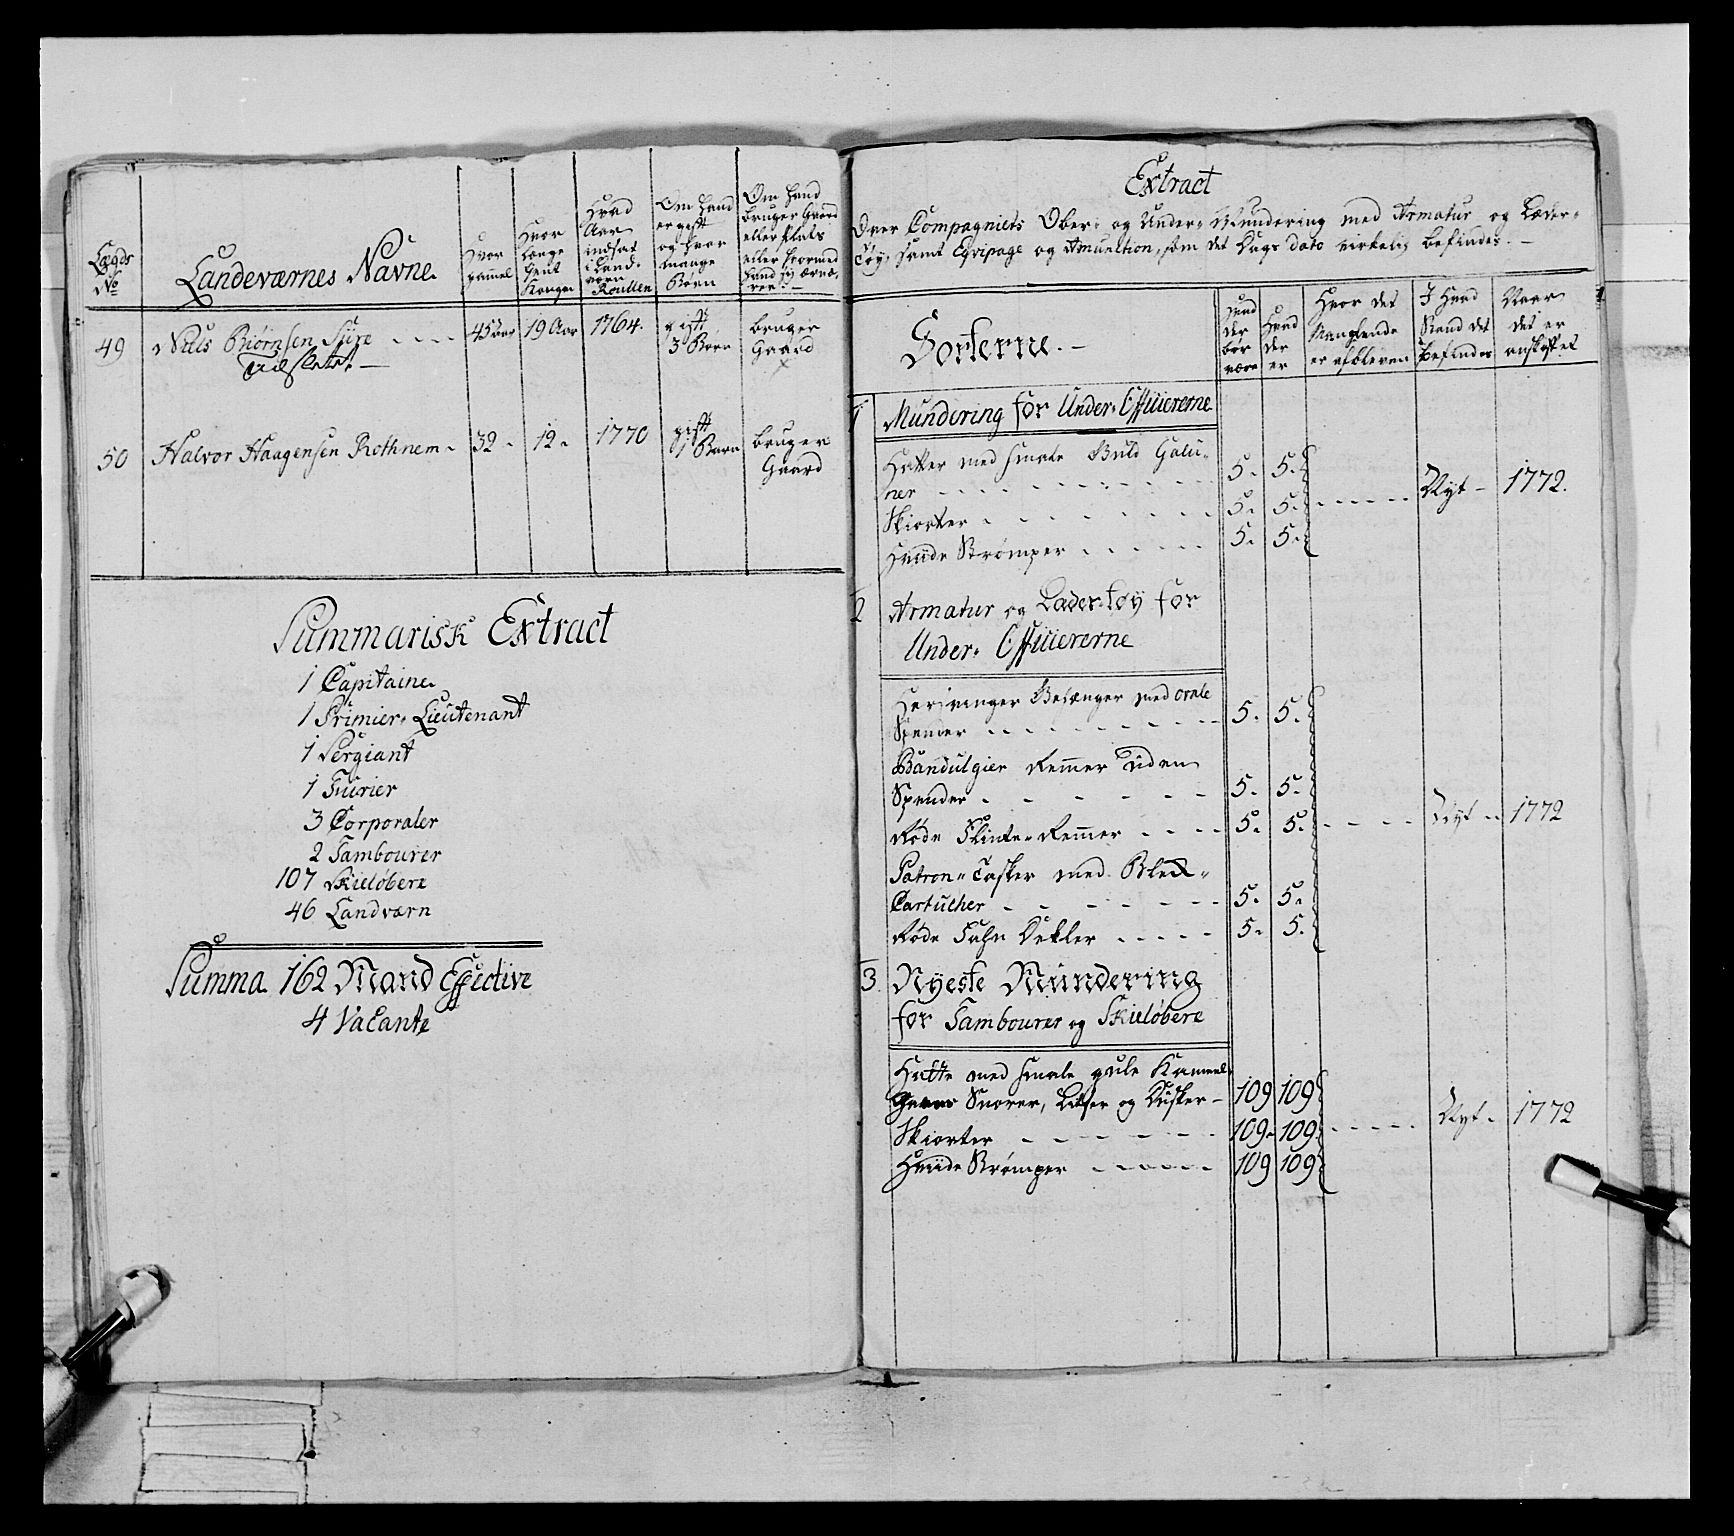 Lægds
No
Landeværnes Navne
Hvor
gammel
Hvor
længe
tient
Kongen
Hvad
Aar
indsat
i Land-
værn
Roullen
Om hand
er gift
og hvor
mange
Børn
Om hand
bruger Gaard
eller Plads
eller hvormed
hand sig ernæ-
rer
49 Niels Biørnsen Sure 45 aar 19 Aar 1764. gift bruger
Udslettet. 3 Børn Gaard
50 Halvor Haagensen Rothnem 32 12 1770 gift bruger
1 Barn Gaard
Summarisk Extract
1 Capitaine
1 Primier-Lieutenant
1 Sergiant
1 Furier
3 Corporaler
2 Tambourer
107 Skieløbere
46 Landværn
Summa 162 Mand Effective
4 Vacante
Extract
Over Compagniets Ober- og Under-Mundering med Armatur og Læder-
Tøy, samt Eqvipage og Amunition, som det Dags Dato virkelig befindes.
Sorterne.
Hvad
der
bør
være
Hvad
der
er
Hvor det
Manglende
er afbleven
I Hvad
Stand det
befindes
Naar
det er
anskaffet
1 Mundering for Under-Officiererne
Hatter med smale Guld Galu-
ner 5. 5.
Skiorter 5. 5. Nyt 1772.
Hvide Strømper 5. 5.
2 Armatur og Læder-Tøy for
Under-Officiererne
med ovale
Spender 5. 5.
Bandulgier Remmer uden
Spender 5. 5.
Røde Flinte-Remmer 5. 5. Nyt 1772
Patron-Tasker med Blek-
Cartucher 5. 5.
Røde Dekler 5. 5.
3 Nyeste Mundering
for Tambourer og Skieløbere
Hatte med smale gule Kameel
Garns Snorer, Litser og Dusker 109 109
Skiorter 109 109 Nyt 1772
Hvide Strømper 109 109